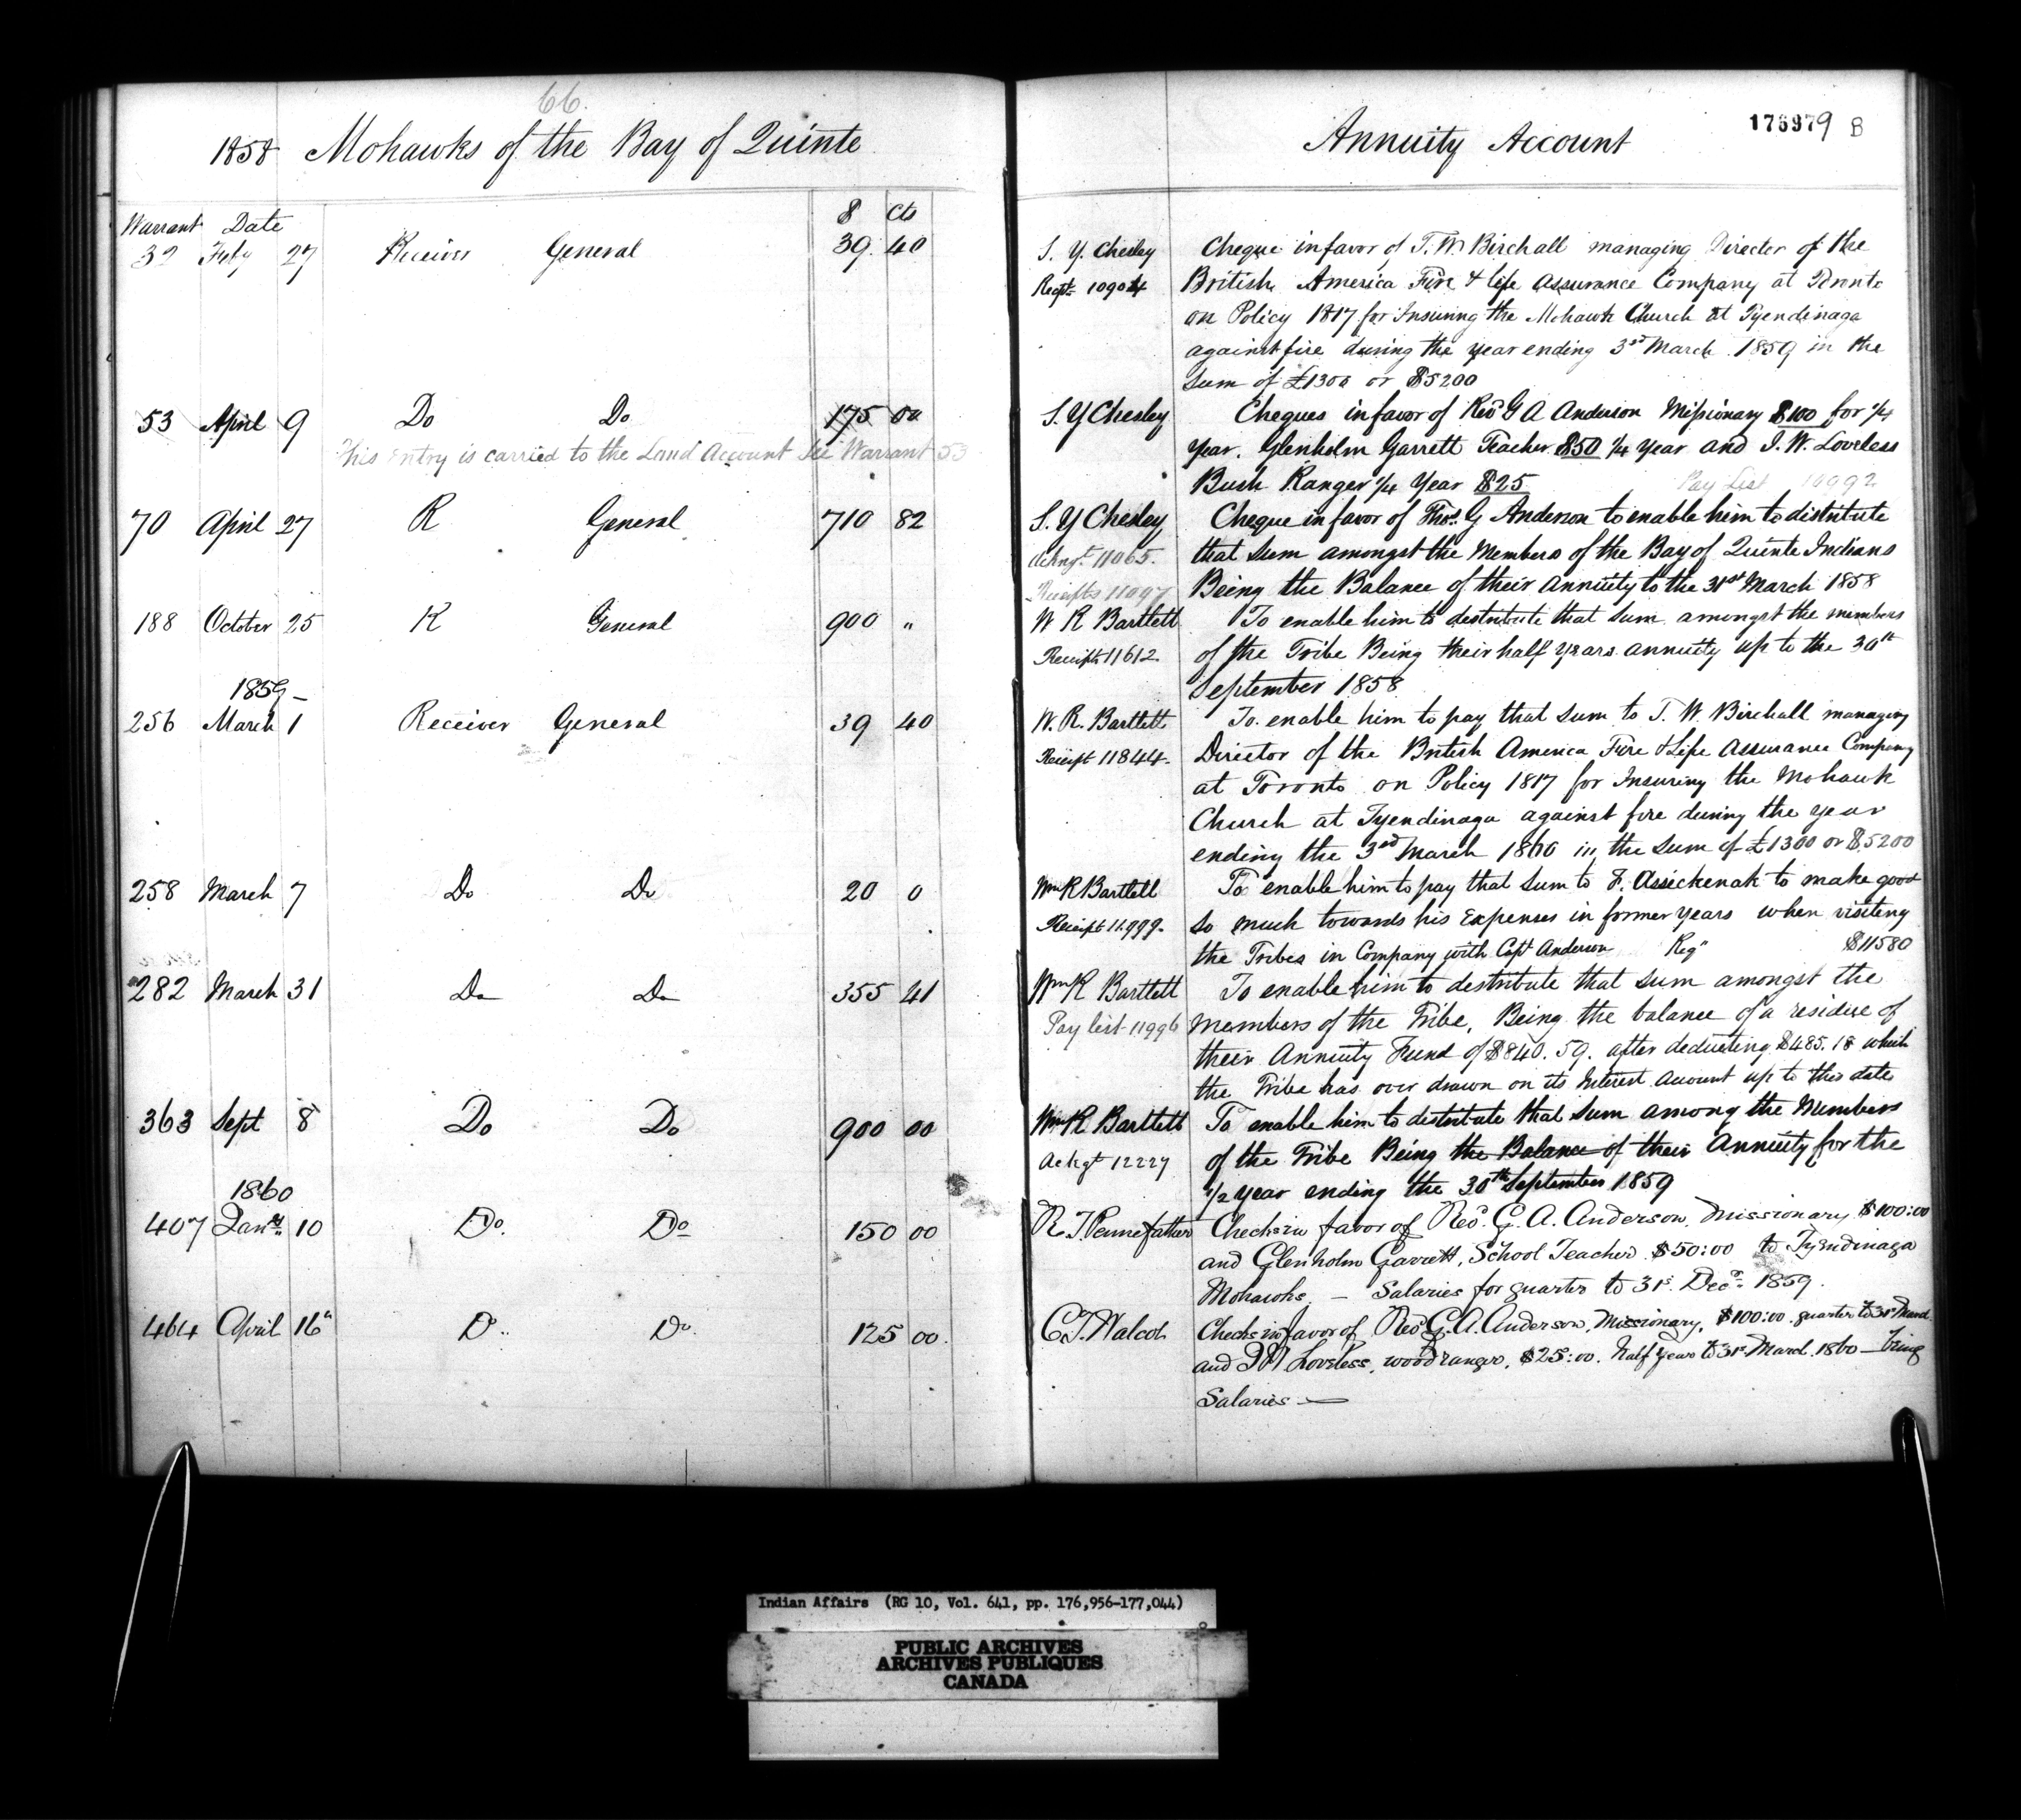 66.
1858 Mohawks of the Bay of Quinte
Warrant Date $ Cts
32 Feby 27 Receiver General 39. 40
53 April 9 Do Do 175 00
This Entry is carried to the Land Account See Warrant 53
70 April 27 R General 710 82
188 October 25 R General 900 "
1859 –
256 March 1 Receiver General 39 40
258 March 7 Do Do 20 0
282 March 31 Do Do 355 41
363 Sept 8 Do Do 900 00
1860
407 Jany 10 Do. Do 150 00
464 April 16 Do Do 125 00.
Annuity Account
176979 B
S. Y. Chesley Cheque in favor of T. W. Birchall managing Director of the
Recpt 10904 British America Fire & life assurance Company at Toronto
on Policy 1817 for Insuring the Mohawk Church at Tyendinaga
against fire during the year ending 3rd March 1859 in the
sum of £1300 or $5200
S. Y Chesley Cheques in favor of Revd G A Anderson Missionary $100 for 1/4
year. Glenholm Garrett Teacher $50 1/4 year and J. W. Loveless
Bush Ranger 1/4 Year $25 Pay List 10992
S. Y Chesley Cheque in favor of Thos. G Anderson to enable him to distribute
Ackngt 11065. that sum amongst the Members of the Bay of Quinte Indians
Receipts 11097 Being the Balance of their annuity to the 31st March 1858
W R Bartlett To enable him to destribute that sum amongst the members
Receipt 11612 of the Tribe Being their half years annuity up to the 30th
September 1858
W. R. Bartlett To enable him to pay that sum to T. W. Birchall managing
Receipt 11844 Director of the British America Fire & Life Assurance Company
at Toronto on Policy 1817 for Insuring the Mohawk
Church at Tyendinaga against fire during the year
ending the 3rd March 1860 in the sum of £1300 or $5200
Wm R Bartlett To enable him to pay that sum to F. Assickenak to make good
Receipt 11999. so much towards his Expenses in former years when visiting
the Tribes in Company with Capt Anderson Reg" $11580
Wm R Bartlett To enable him to destribute that sum amongst the
Pay list 11996 members of the Tribe, Being the balance of a residue of
their Annuity Fund of $840.59. after deducting $485.18 which
the Tribe has over drawn on its Interest account up to this date
Wm R Bartlett To enable him to destribute that sum among the Members
Ackgt 12227 of the Tribe Being the Balance of their Annuity for the
1/2 year ending the 30th September 1859
R. T. Pennefather Checks in favor of Revd. G. A. Anderson, Missionary $100:00
and Glenholm Garrett, School Teacher $50:00 to Tyendinaga
Mohawks. – Salaries for quarter to 31st Decr 1859.
C. T. Walcot Checks in favor of Revd G. A. Anderson, Missionary, $100:00. quarter to 31st March
and J W Loveless, wood ranger, $25:00. half year to 31st March. 1860 – being
Salaries —
Indian Affairs (RG 10, Vol. 641, pp. 176,956-177,044)
PUBLIC ARCHIVES
ARCHIVES PUBLIQUES
CANADA